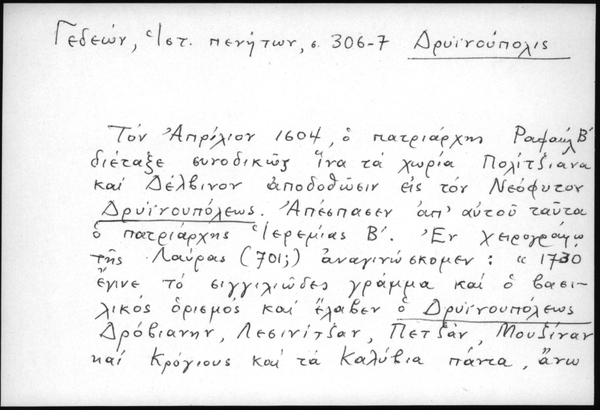 Γεδεών, Ἱστ. πενήτων, σ. 306-7 Δρυϊνούπολις
Τόν Ἀπρίλιον 1604, ὁ πατριάρχης Ραφαήλ Β΄
διέταξε συνοδικῶς ἵνα τά χωρία Πολίτζιανα
καί Δέλβινον ἀποδοθῶσιν εἰς τόν Νεόφυτον
Δρυϊνουπόλεως. Ἀπέσπασεν ἀπ' αὐτοῦ ταῦτα
ὁ πατριάρχης Ἱερεμίας Β΄. Ἐν χειρογράφῳ
τῆς Λαύρας (701;) ἀναγινώσκομεν: « 1730
ἔγινε τό σιγγιλιῶδες γράμμα καί ὁ βασι-
λικός ὁρισμός καί ἔλαβεν ὁ Δρυϊνουπόλεως
Δρόβιανην, Λεσινίτζαν, Πετζάν, Μουζίναν
καί Κρόγιους καί τά Καλύβια πάντα, ἄνω